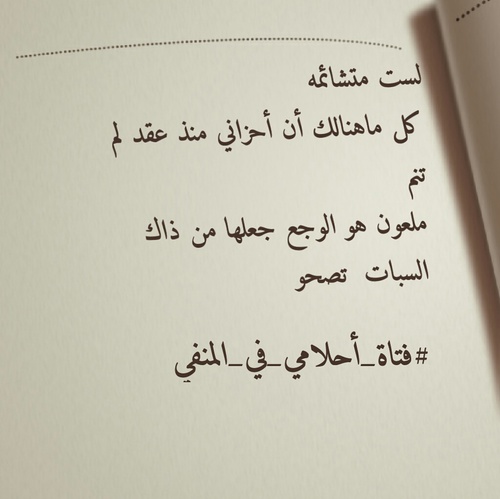 لست متشائمه
كل ماهنالك أن أحزاني منذ عقد لم
تنم
ملعون هو الوجع جعلها من ذاك
السبات تصحو
#فتاة_أحلامي_في_المنفي